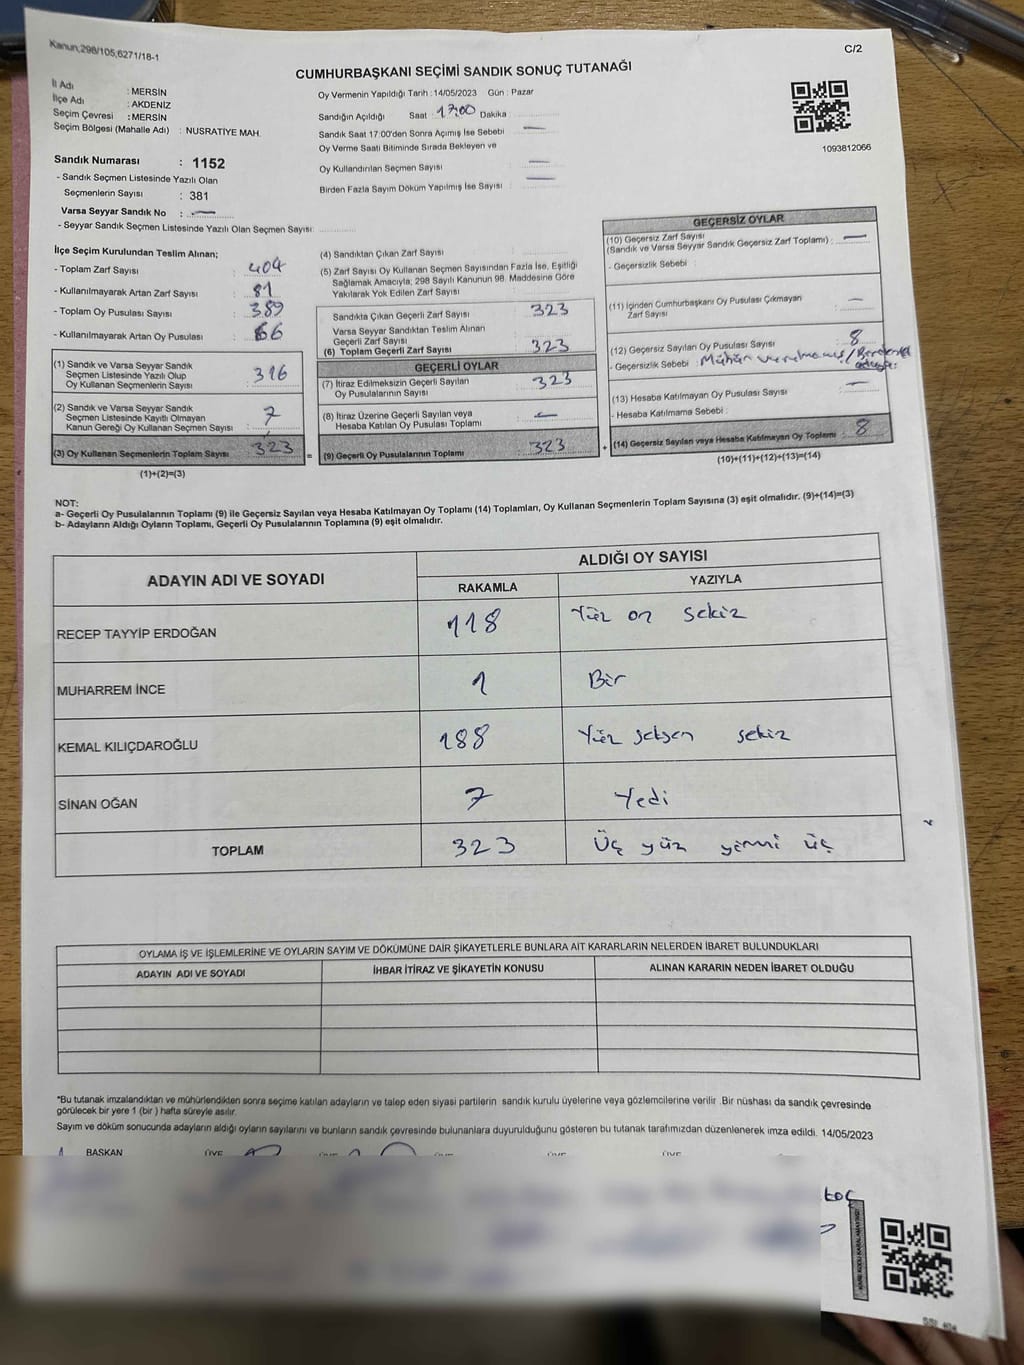 Kanun;298/105,6271/18-1
C/2
CUMHURBAŞKANI SEÇİMİ SANDIK SONUÇ TUTANAĞI
İl Adı : MERSİN
İlçe Adı : AKDENİZ
Seçim Çevresi : MERSİN
Seçim Bölgesi (Mahalle Adı) : NUSRATİYE MAH.
Sandık Numarası : 1152
- Sandık Seçmen Listesinde Yazılı Olan
Seçmenlerin Sayısı : 381
Varsa Seyyar Sandık No : —
- Seyyar Sandık Seçmen Listesinde Yazılı Olan Seçmen Sayısı:
Oy Vermenin Yapıldığı Tarih : 14/05/2023 Gün : Pazar
Sandığın Açıldığı Saat : 17:00 Dakika
Sandık Saat 17:00'den Sonra Açımış İse Sebebi : —
Oy Verme Saati Bitiminde Sırada Bekleyen ve
Oy Kullandırılan Seçmen Sayısı : —
Birden Fazla Sayım Döküm Yapılmış İse Sayısı : —
1093812066
İlçe Seçim Kurulundan Teslim Alınan;
- Toplam Zarf Sayısı : 404
- Kullanılmayarak Artan Zarf Sayısı : 81
- Toplam Oy Pusulası Sayısı : 389
- Kullanılmayarak Artan Oy Pusulası : 66
(1) Sandık ve Varsa Seyyar Sandık
Seçmen Listesinde Yazılı Olup
Oy Kullanan Seçmenlerin Sayısı : 316
(2) Sandık ve Varsa Seyyar Sandık
Seçmen Listesinde Kayıtlı Olmayan
Kanun Gereği Oy Kullanan Seçmen Sayısı : 7
(3) Oy Kullanan Seçmenlerin Toplam Sayısı : 323
(1)+(2)=(3)
(4) Sandıktan Çıkan Zarf Sayısı :
(5) Zarf Sayısı Oy Kullanan Seçmen Sayısından Fazla İse, Eşitliği
Sağlamak Amacıyla; 298 Sayılı Kanunun 98. Maddesine Göre
Yakılarak Yok Edilen Zarf Sayısı :
Sandıkta Çıkan Geçerli Zarf Sayısı : 323
Varsa Seyyar Sandıktan Teslim Alınan
Geçerli Zarf Sayısı :
(6) Toplam Geçerli Zarf Sayısı : 323
GEÇERLİ OYLAR
(7) İtiraz Edilmeksizin Geçerli Sayılan
Oy Pusulalarının Sayısı : 323
(8) İtiraz Üzerine Geçerli Sayılan veya
Hesaba Katılan Oy Pusulası Toplamı : —
= (9) Geçerli Oy Pusulalarının Toplamı : 323 +
GEÇERSİZ OYLAR
(10) Geçersiz Zarf Sayısı
(Sandık ve Varsa Seyyar Sandık Geçersiz Zarf Toplamı) : —
- Geçersizlik Sebebi :
(11) İçinden Cumhurbaşkanı Oy Pusulası Çıkmayan
Zarf Sayısı : —
(12) Geçersiz Sayılan Oy Pusulası Sayısı : 8
- Geçersizlik Sebebi : Mühür
(13) Hesaba Katılmayan Oy Pusulası Sayısı : —
- Hesaba Katılmama Sebebi :
(14) Geçersiz Sayılan veya Hesaba Katılmayan Oy Toplamı : 8
(10)+(11)+(12)+(13)=(14)
NOT:
a- Geçerli Oy Pusulalarının Toplamı (9) ile Geçersiz Sayılan veya Hesaba Katılmayan Oy Toplamı (14) Toplamları, Oy Kullanan Seçmenlerin Toplam Sayısına (3) eşit olmalıdır. (9)+(14)=(3)
b- Adayların Aldığı Oyların Toplamı, Geçerli Oy Pusulalarının Toplamına (9) eşit olmalıdır.
ADAYIN ADI VE SOYADI ALDIĞI OY SAYISI
RAKAMLA YAZIYLA
RECEP TAYYİP ERDOĞAN 118 Yüz on sekiz
MUHARREM İNCE 1 Bir
KEMAL KILIÇDAROĞLU 188 Yüz seksen sekiz
SİNAN OĞAN 7 Yedi
TOPLAM 323 Üç yüz yirmi üç
OYLAMA İŞ VE İŞLEMLERİNE VE OYLARIN SAYIM VE DÖKÜMÜNE DAİR ŞİKAYETLERLE BUNLARA AİT KARARLARIN NELERDEN İBARET BULUNDUKLARI
ADAYIN ADI VE SOYADI İHBAR İTİRAZ VE ŞİKAYETİN KONUSU ALINAN KARARIN NEDEN İBARET OLDUĞU
*Bu tutanak imzalandıktan ve mühürlendikten sonra seçime katılan adayların ve talep eden siyasi partilerin sandık kurulu üyelerine veya gözlemcilerine verilir .Bir nüshası da sandık çevresinde
görülecek bir yere 1 (bir ) hafta süreyle asılır.
Sayım ve döküm sonucunda adayların aldığı oyların sayılarını ve bunların sandık çevresinde bulunanlara duyurulduğunu gösteren bu tutanak tarafımızdan düzenlenerek imza edildi. 14/05/2023
BAŞKAN ÜYE